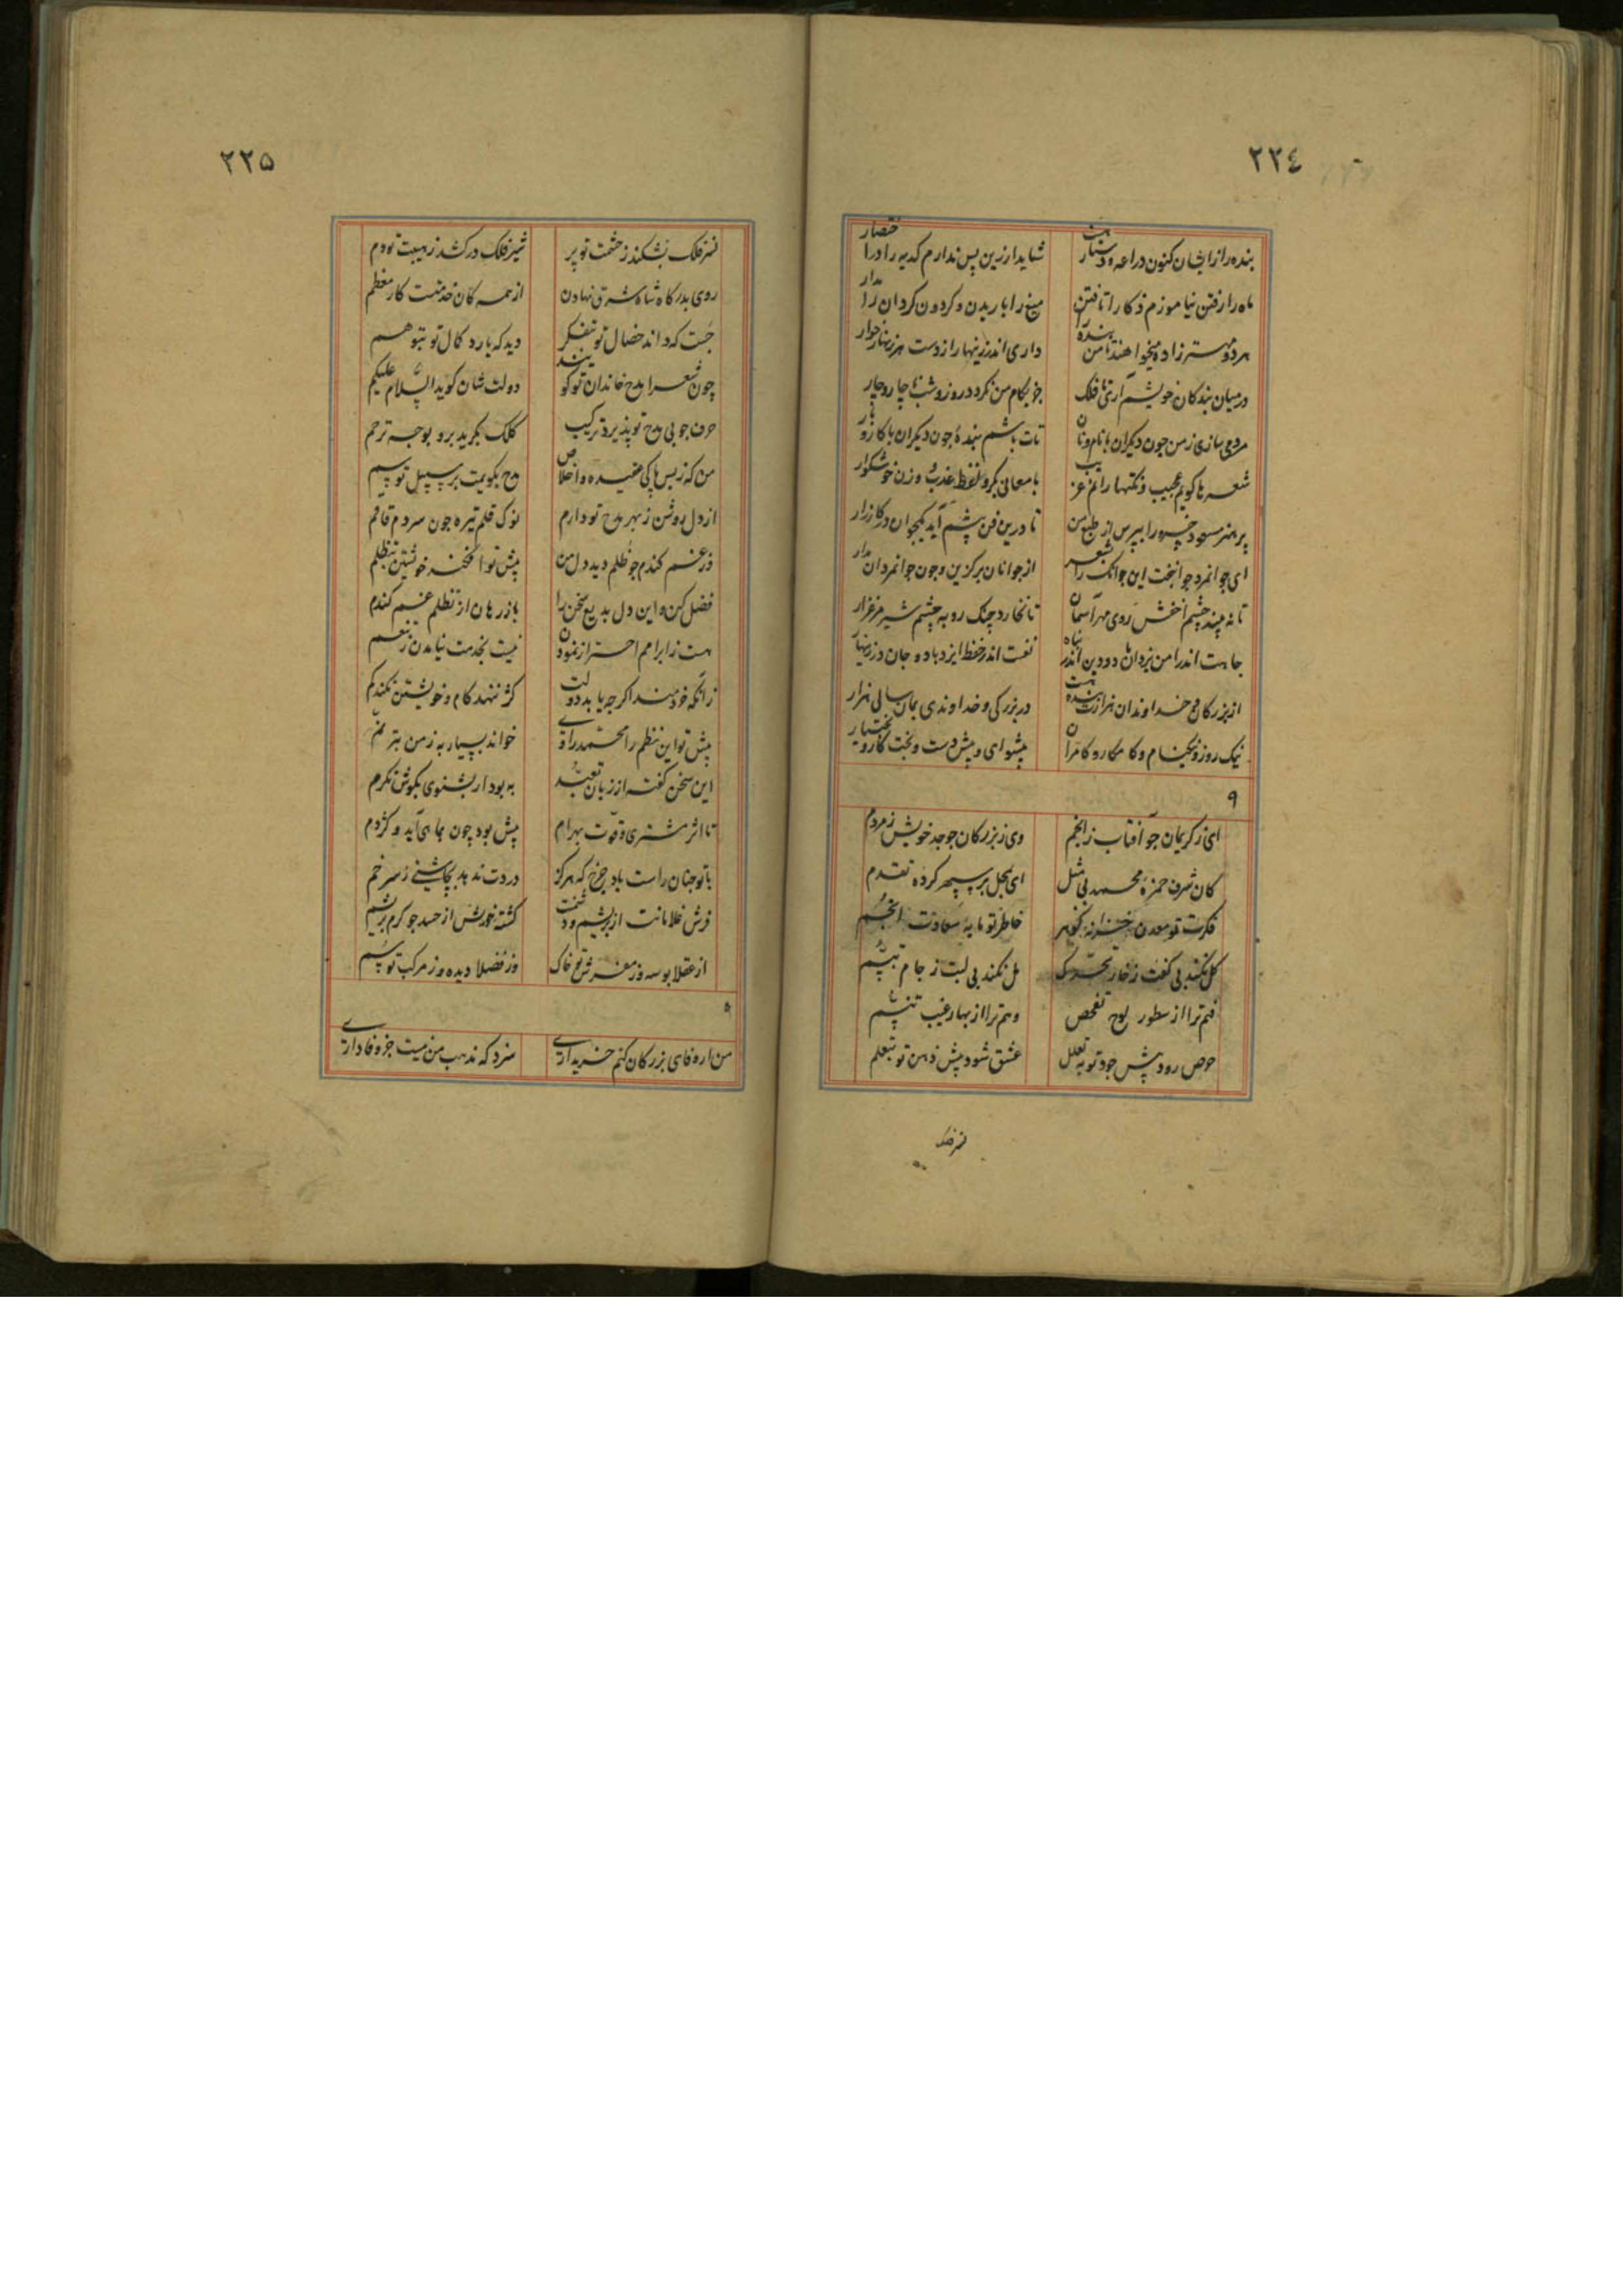 ٢٢٤
بنده را از ایشان کنون دراعه و دستار هست
شاید ار زین پس ندارم کدیه را در اختصار
ماه را رفتن نیاموزم ذکا را تافتن
میغ را باریدن و کردون کردان را مدار
هر دو مهتر زاده میخواهند تا من بنده را
داری اندر زینهار از دست هر زنهار خوار
در میان بندکان خویشم آری تا فلک
جز بکام من نکردد روز و شب ناچار و چار
مردمی سازی ز من چون دیکران با نام و نان
تات باشم بنده چون دیکران با کار و بار
شعرها کویم عجیب و نکتها رانم غریب
با معانی بکر و لفظ عذب و وزن خوشکوار
پر هنر مسعود خسرو را بپرس از طبع من
تا درین فن پیشم آید کیجوان در کارزار
ای جوانمرد جوانبخت این جوانک را بشعر
از جوانان برکزین و چون جوانمردان بدار
تا نه بیند چشم اخفش روی مهر آسمان
تا نخارد چنک روبه چشم شیر مرغزار
جاهت اندر امن یزدان باد و دین اندر پناه
نفست اندر حفظ ایزد باد و جان در زینهار
از بزرکان و خداوندان هزارت بنده هست
در بزرکی و خداوندی بمان سالی هزار
نیک روز و نیکنام و کامکار و کامران
پیشوای و پیش دست و بخت کار و بختیار
٩
ای ز کریمان چو آفتاب ز انجم
وی ز بزرکان چو جد خویش ز مردم
کان شرف حمزه محمد بی مثل
ای بمحل بر سپهر کرده تقدم
فکرت تو معدن خزانه کوهر
خاطر تو مایه سعادت انجم
کل نکند بی کفت ز خار تحرک
مل نکند بی لبت ز جام تبسم
فهم ترا از سطور لوح تفحص
وهم ترا از بهار غیب تنسم
حرص رود پیش جود تو به تعلل
عشق شود پیش ذهن تو بتعلم
نسر فلک
٢٢٥
نسر فلک بشکند ز حشمت تو پر
شیر فلک در کشد ز هیبت تو دم
روی بدرکاه شاه شرق نهادن
از همه کان خدمتست کار معظم
جست که داند خصال تو بتفکر
دید که یارد کمال تو بتوهم
چون شعرا مدح خاندان تو کویند
دولت شان کوید السلام علیکم
حرف چو بی مدح تو پذیرد ترکیب
کلک بکرید برو بوجه ترحم
من که ز بس پاکی عقیده و اخلاص
مدح بکویمت بر سبیل توسم
از دل روشن ز بهر مدح تو دارم
نوک قلم تیره چون سر دم قاقم
در غم کندم چو ظلم دید دل من
پیش تو افکند خویشتن بتظلم
فضل کن و این دل بدیع سخن را
باز رهان از تظلم غم کندم
هست ز ابرام احتراز نمودن
نیست بخدمت نیامدن ز تنعم
زانکه خردمند اکر چه یابد دولت
کژ ننهد کام و خویشتن نکند کم
پیش تو این نظم را محمد راوی
خواند بسیار به ز من بترنم
این سخن کفته از زبان تعبد
به بود ار بشنوی بکوش تکرم
تا اثر مشتری و قوت بهرام
پیش بود چون بماهی آید و کژدم
با تو چنان راست باد چرخ که هرکز
دردت ندهد بچاشنی ز سر خم
فرش غلامانت از بریشم و دشمنت
کشته خورش از حسد چو کرم بریشم
از عقلا بوسه وز مفرش تو خاک
وز فضلا دیده وز مرکب تو سم
من ار وفای بزرکان کنم خریداری
سزد که مذهب من نیست جز وفاداری